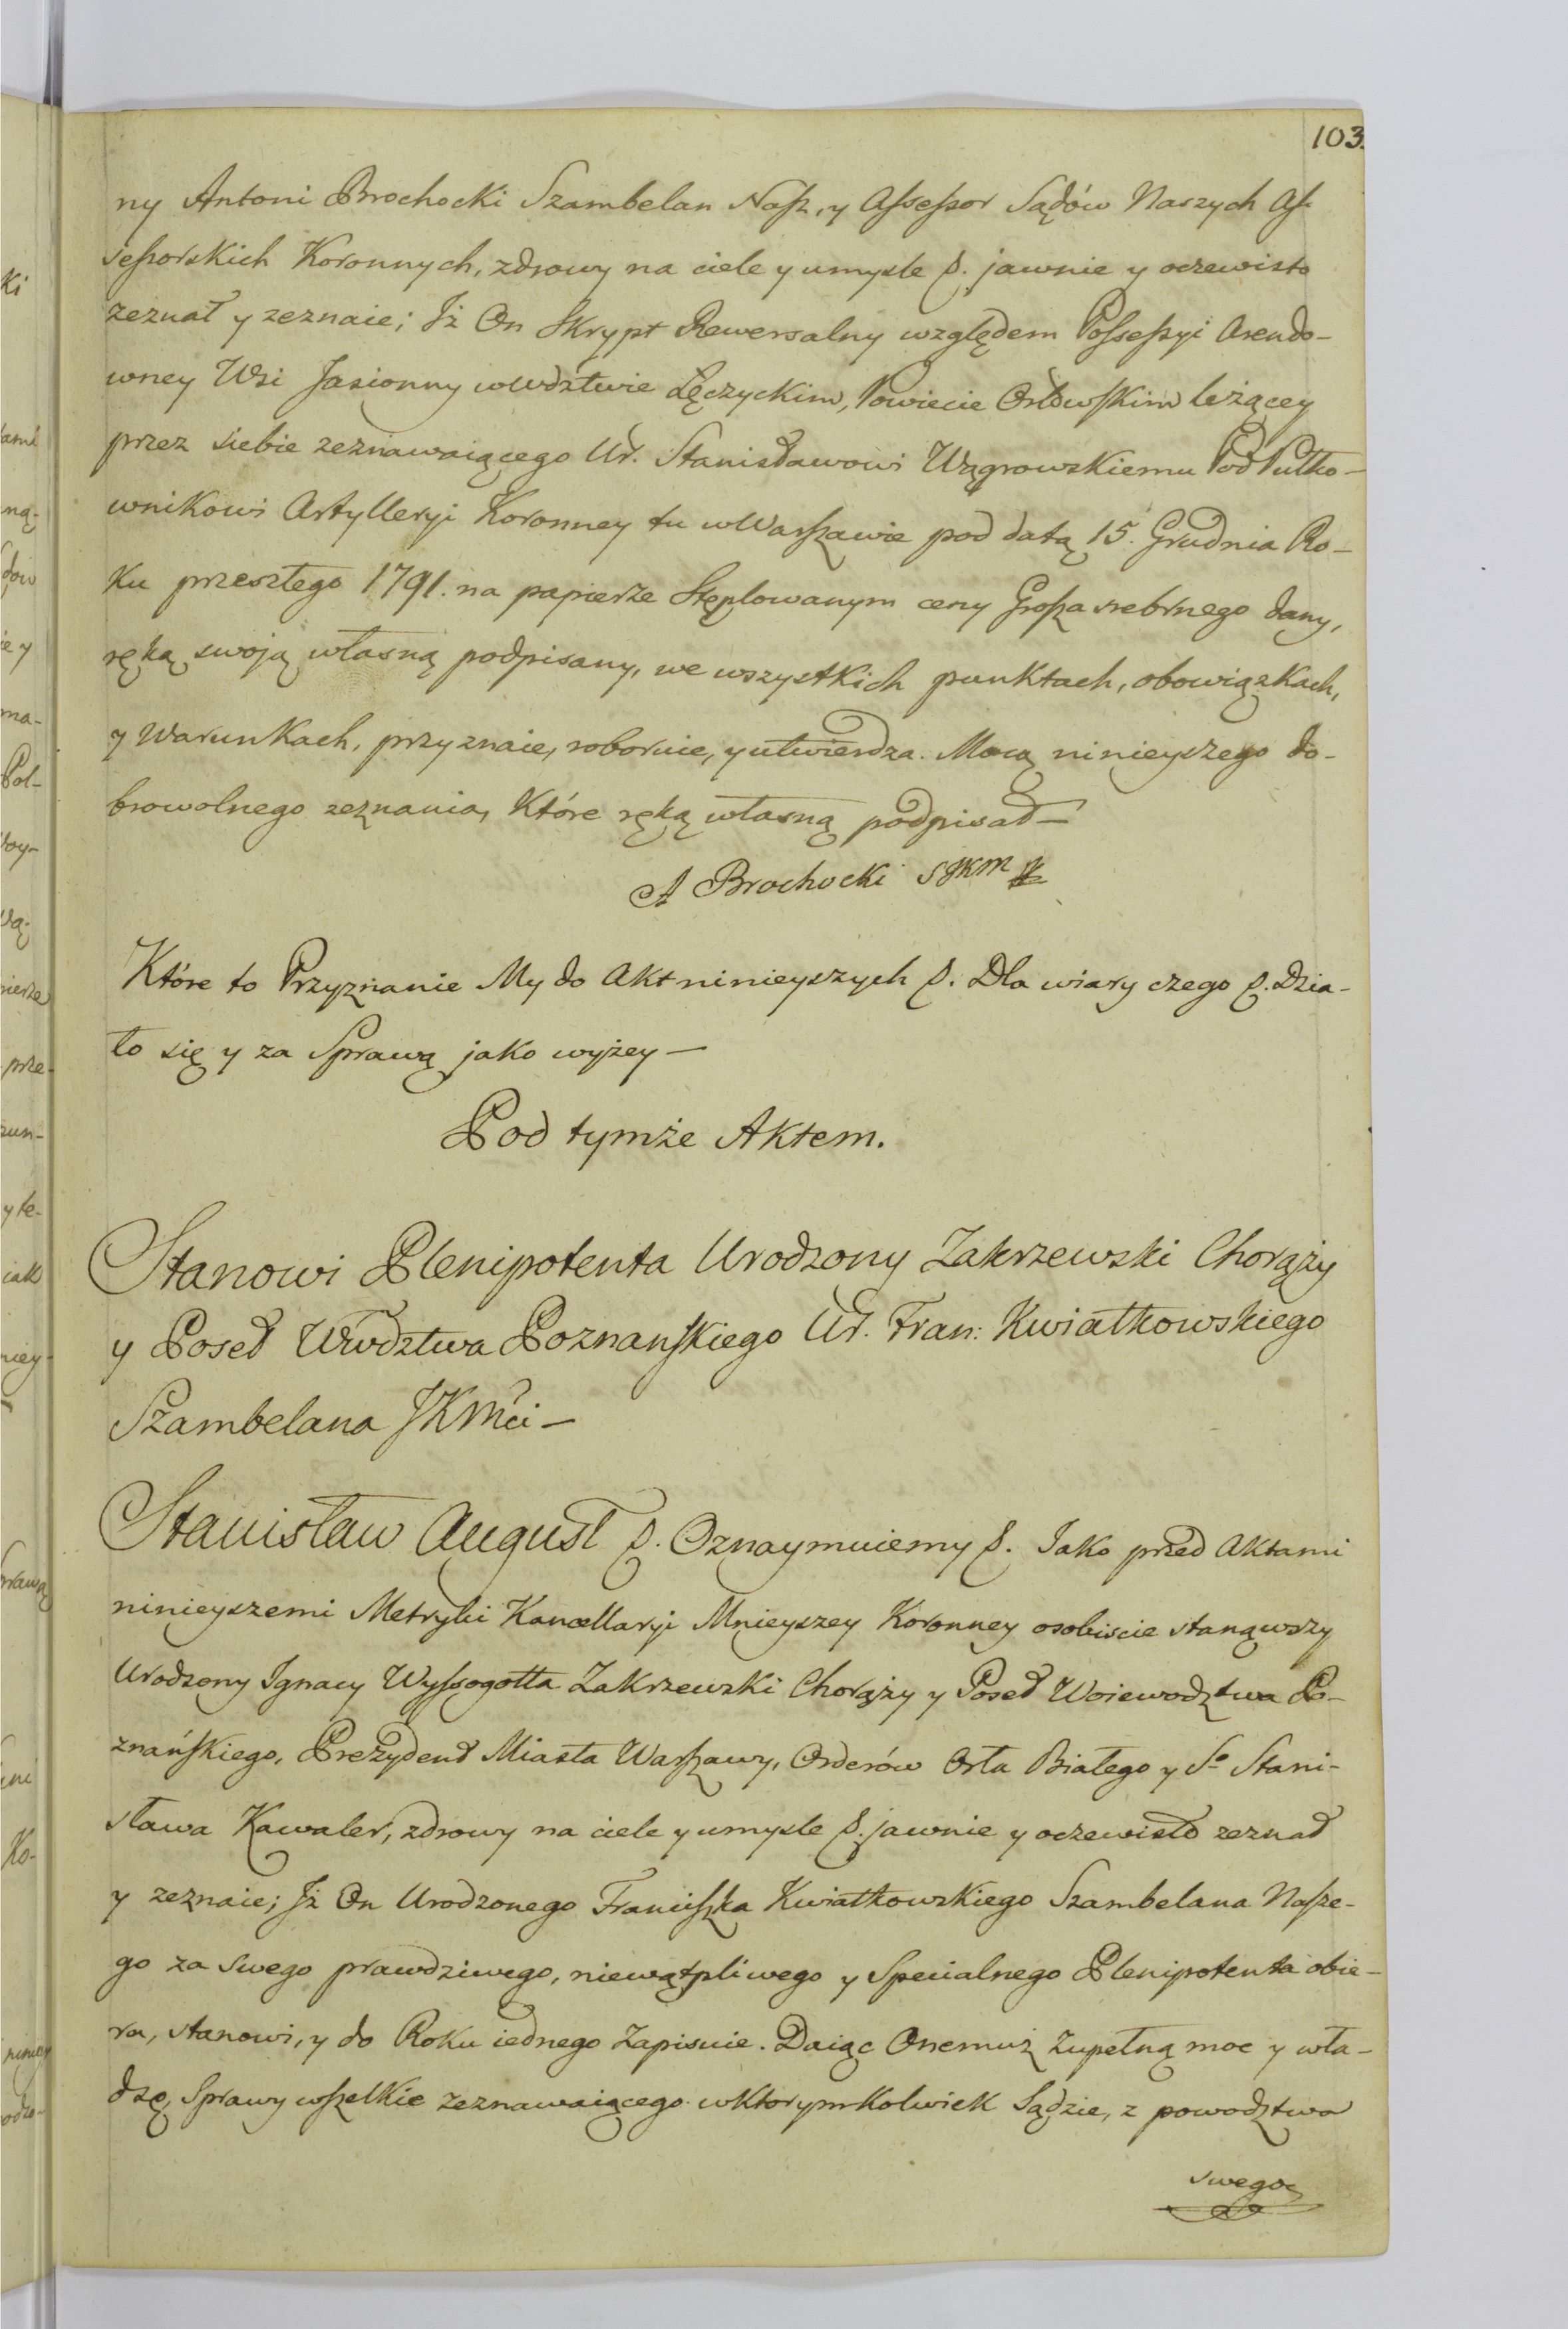 103.
ny Antoni Brochocki Szambelan Nasz, y Assessor Sądów Naszych As-
sessorskich Koronnych, zdrowy na ciele y umysle p. jawnie y oczewisto
zeznał y zeznaie; Jż On Skrypt Rewersalny względem Possessyi Arendo-
wney Wsi Jasionny wWdztwie Łęczyckim, Powiecie Orłowskim leżącey
przez siebie zeznawaiącego Ur. Stanisławowi Wągrowskiemu Pod Pułko-
wnikowi Artylleryi Koronney tu wWarszawie pod datą 15. Grudnia Ro-
ku przeszłego 1791. na papierze Stęplowanym ceny Grosza srebrnego dany,
ręką swoją własną podpisany, we wszystkich punktach, obowiązkach,
y Warunkach, przyznaie, roboruie, y utwierdza. Mocą ninieyszego do-
browolnego zeznania, Które ręką własną podpisał —
A Brochocki SJKM
Które to Przyznanie My do Akt ninieyszych p. Dla wiary czego p. Dzia-
ło się y za Sprawą jako wyżey —
Pod tymże Aktem.
Stanowi Plenipotenta Urodzony Zakrzewski Chorąży
y Poseł Wwdztwa Poznanskiego Ur. Fran: Kwiatkowskiego
Szambelana JKMci —
Stanisław August p. Oznaymuiemy p. Jako przed Aktami
ninieyszemi Metryki Kancellaryi Mnieyszey Koronney osobiscie stanąwszy
Urodzony Ignacy Wyssogotta Zakrzewski Chorąży y Poseł Woiewodztwa Po-
znańskiego, Prezydent Miasta Warszawy, Orderów Orła Białego y So Stani-
sława Kawaler, zdrowy na ciele y umysle p. jawnie y oczewisto zeznał
y zeznaie; Jż On Urodzonego Franciszka Kwiatkowskiego Szambelana Nasze-
go za swego prawdziwego, niewątpliwego y Specialnego Plenipotenta obie-
ra, stanowi, y do Roku iednego Zapisuie. Daiąc Onemuż Zupełną moc y wła-
dzę, Sprawy wszelkie zeznawaiącego wktorymkolwiek Sądzie, z powodztwa
swego